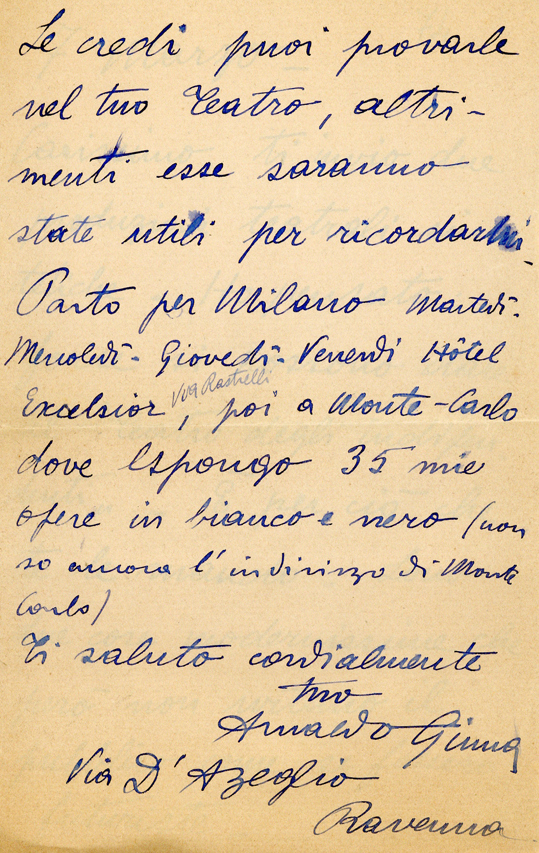 Se credi puoi provarle
nel tuo Teatro, altri-
menti esse saranno
state utili per ricordarmi.
Parto per Milano Martedì-
Mercoledì- Giovedì- Venerdì Hôtel
Via Rastrelli
Excelsior, poi a Monte-Carlo
dove espongo 35 mie
opere in bianco e nero (non
so ancora l'indirizzo di Monte
Carlo)
Ti saluto cordialmente
tuo
Arnaldo Ginna
Via D'Azeglio
Ravenna